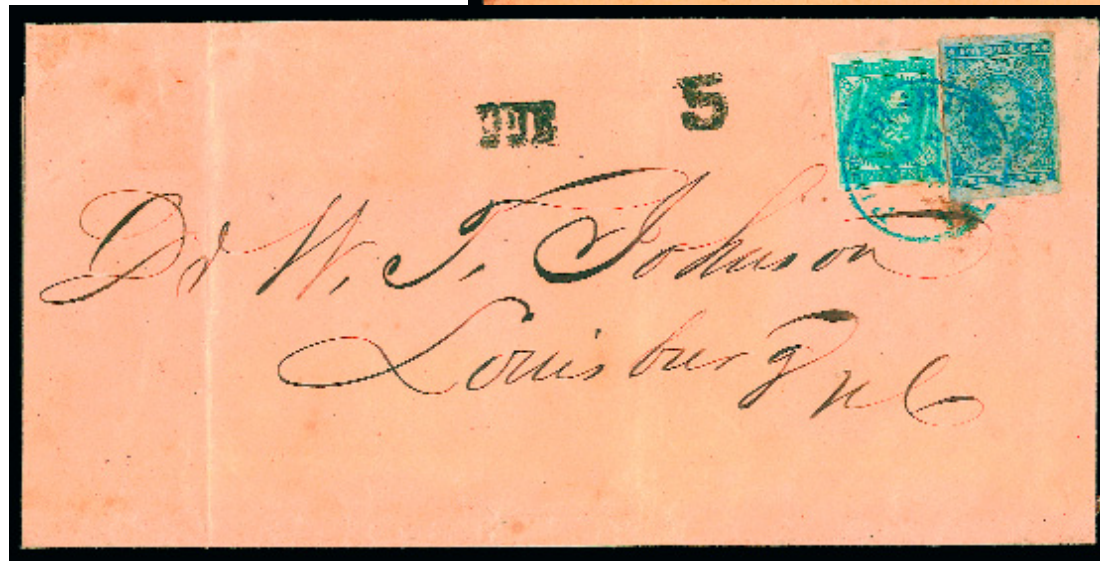 DUE 5
Dr W. T. Johnson
Louisburg
N C